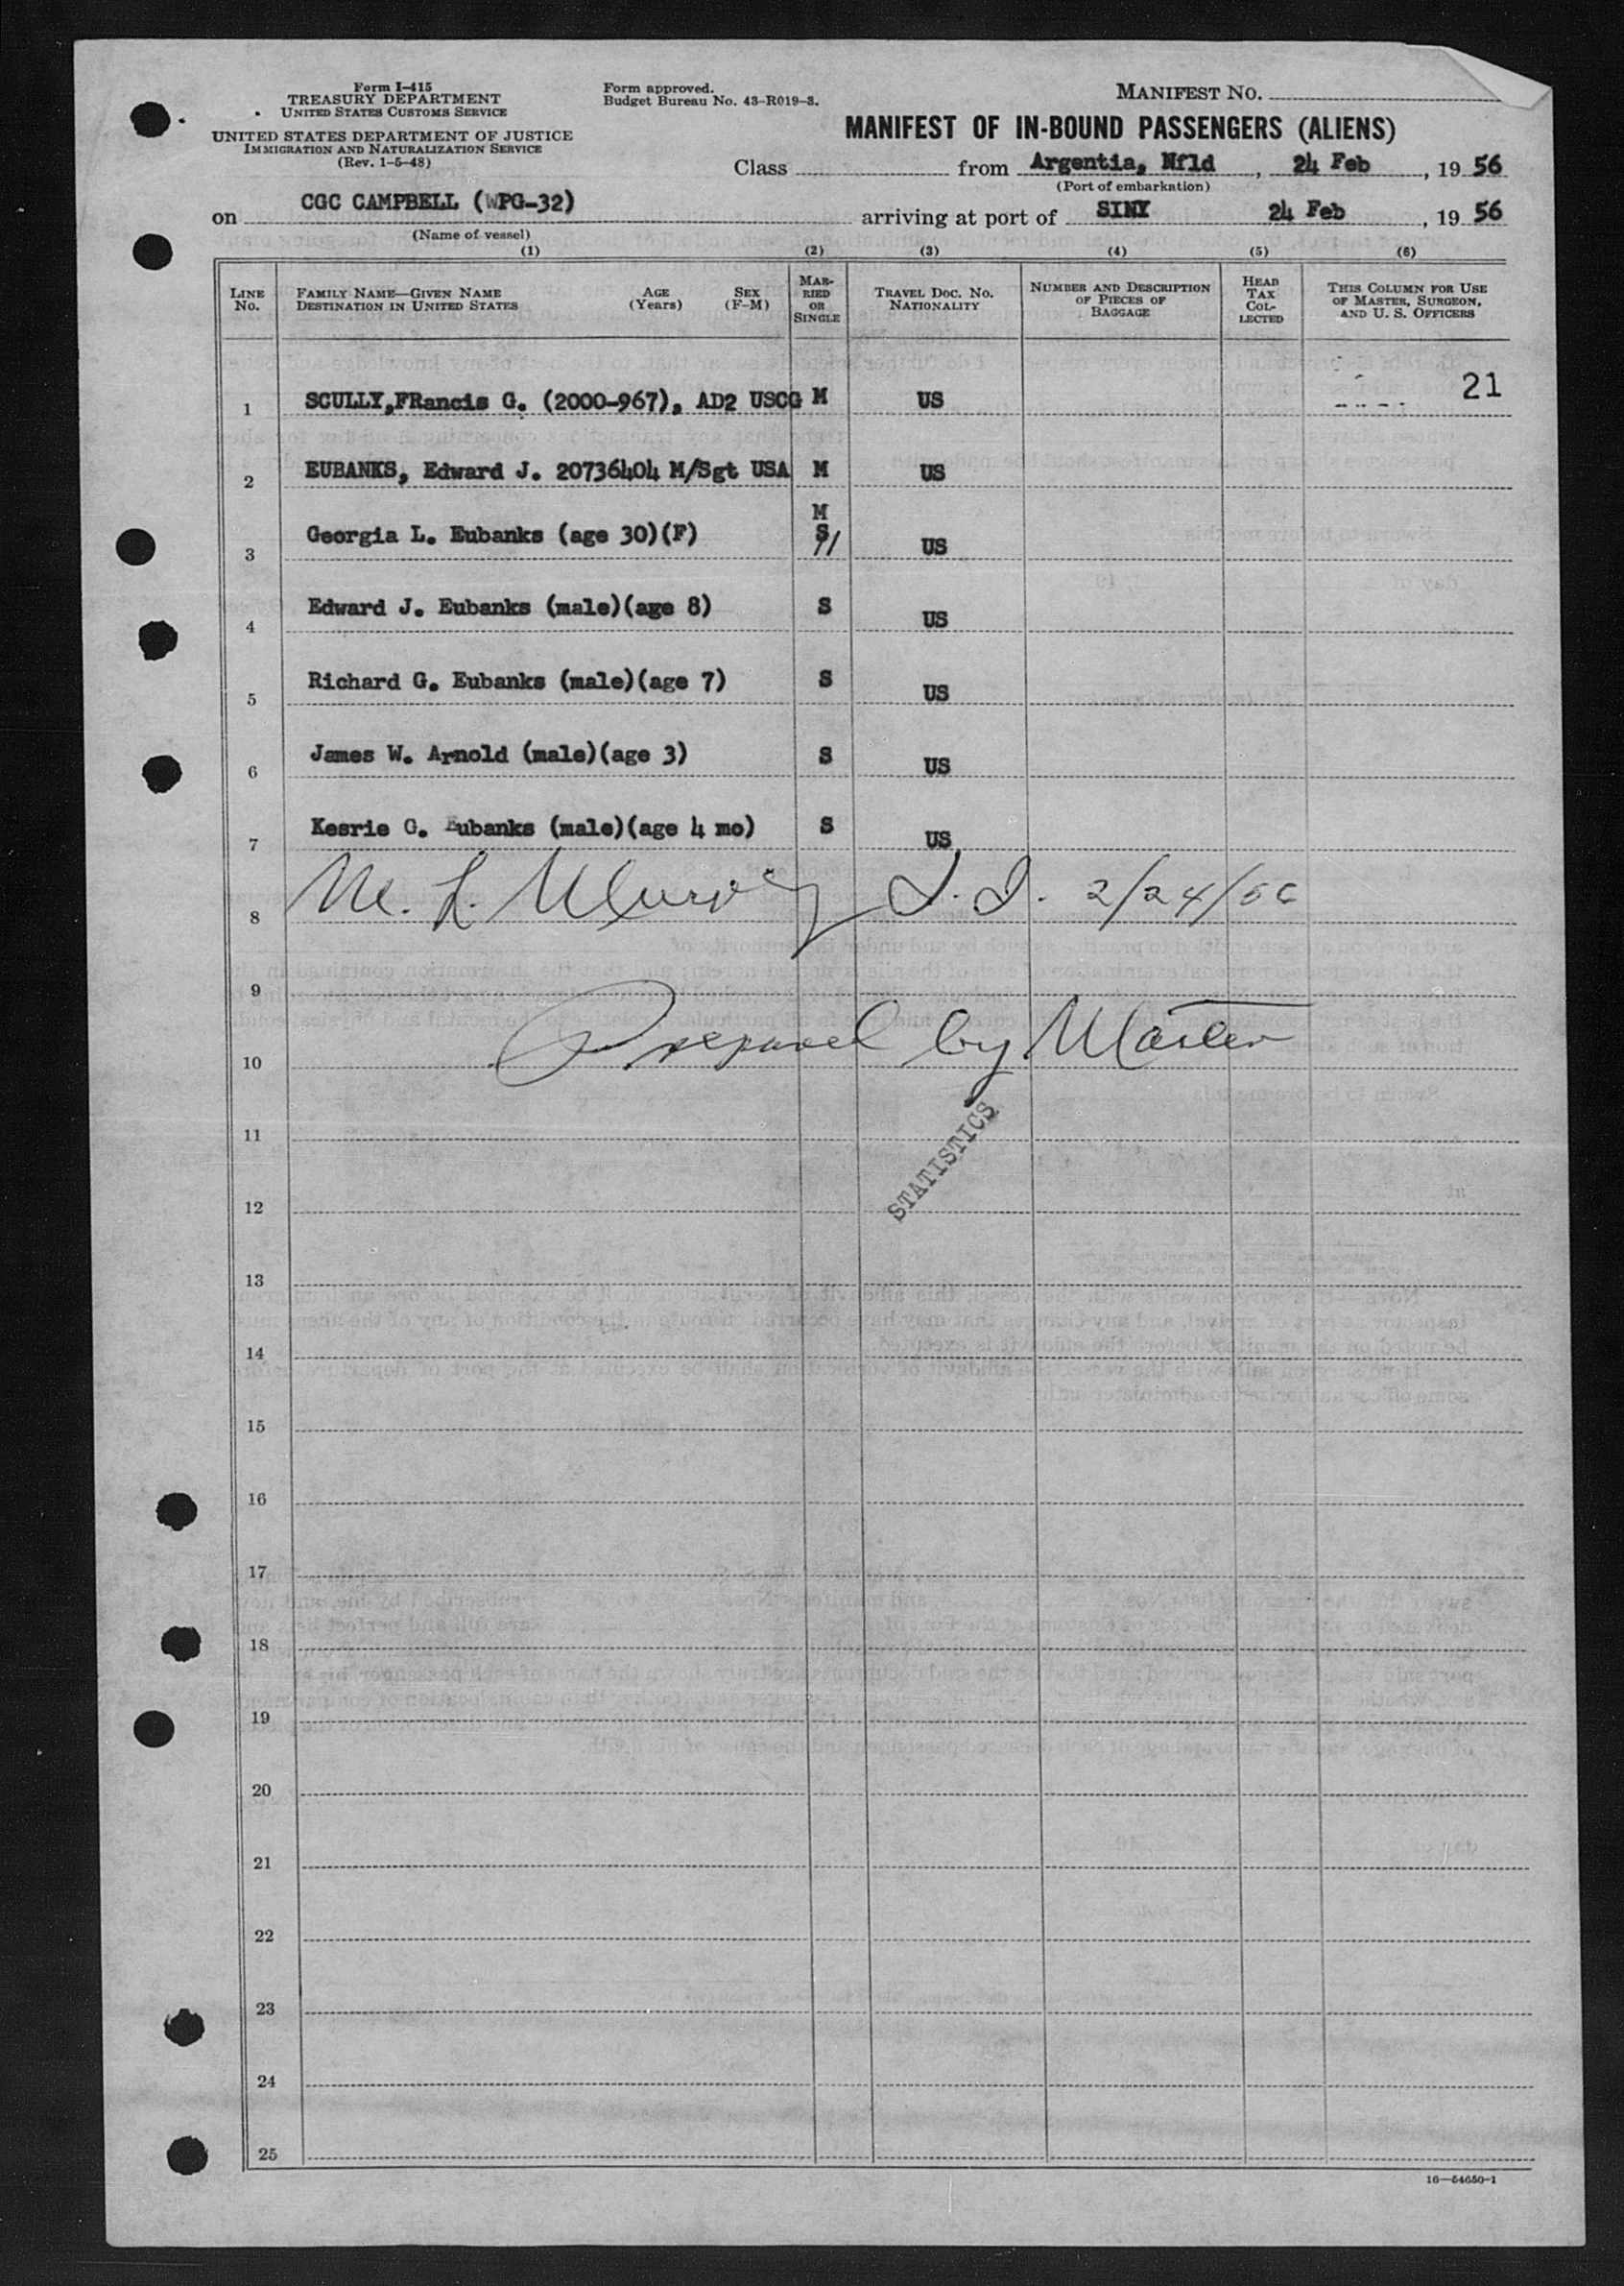 Form I-415
TREASURY DEPARTMENT
UNITED STATES CUSTOMS SERVICE
UNITED STATES DEPARTMENT OF JUSTICE
IMMIGRATION AND NATURALIZATION SERVICE
(Rev. 1-5-48)
Form approved.
Budget Bureau No. 43-R019-3.
MANIFEST NO.
MANIFEST OF IN-BOUND PASSENGERS (ALIENS)
Class from Argentia, Nfld, 24 Feb, 19 56
(Port of embarkation)
on CGC CAMPBELL (WPG-32) arriving at port of SINY 24 Feb, 19 56
(Name of vessel)
(1) (2) (3) (4) (5) (6)
LINE NO. FAMILY NAME—GIVEN NAME DESTINATION IN UNITED STATES AGE (Years) SEX (F-M) MARRIED OR SINGLE TRAVEL DOC. NO. NATIONALITY NUMBER AND DESCRIPTION OF PIECES OF BAGGAGE HEAD TAX COLLECTED THIS COLUMN FOR USE OF MASTER, SURGEON, AND U. S. OFFICERS
1 SCULLY,FRancis G. (2000-967), AD2 USCG M US 21
2 EUBANKS, Edward J. 20736404 M/Sgt USA M US
3 Georgia L. Eubanks (age 30)(F) M S US
4 Edward J. Eubanks (male)(age 8) S US
5 Richard G. Eubanks (male)(age 7) S US
6 James W. Arnold (male)(age 3) S US
7 Kesrie G. Eubanks (male)(age 4 mo) S US
8 M. L. 2/24/56
9
10 Prepared by Master
11
STATISTICS
12
13
14
15
16
17
18
19
20
21
22
23
24
25
16—54650-1